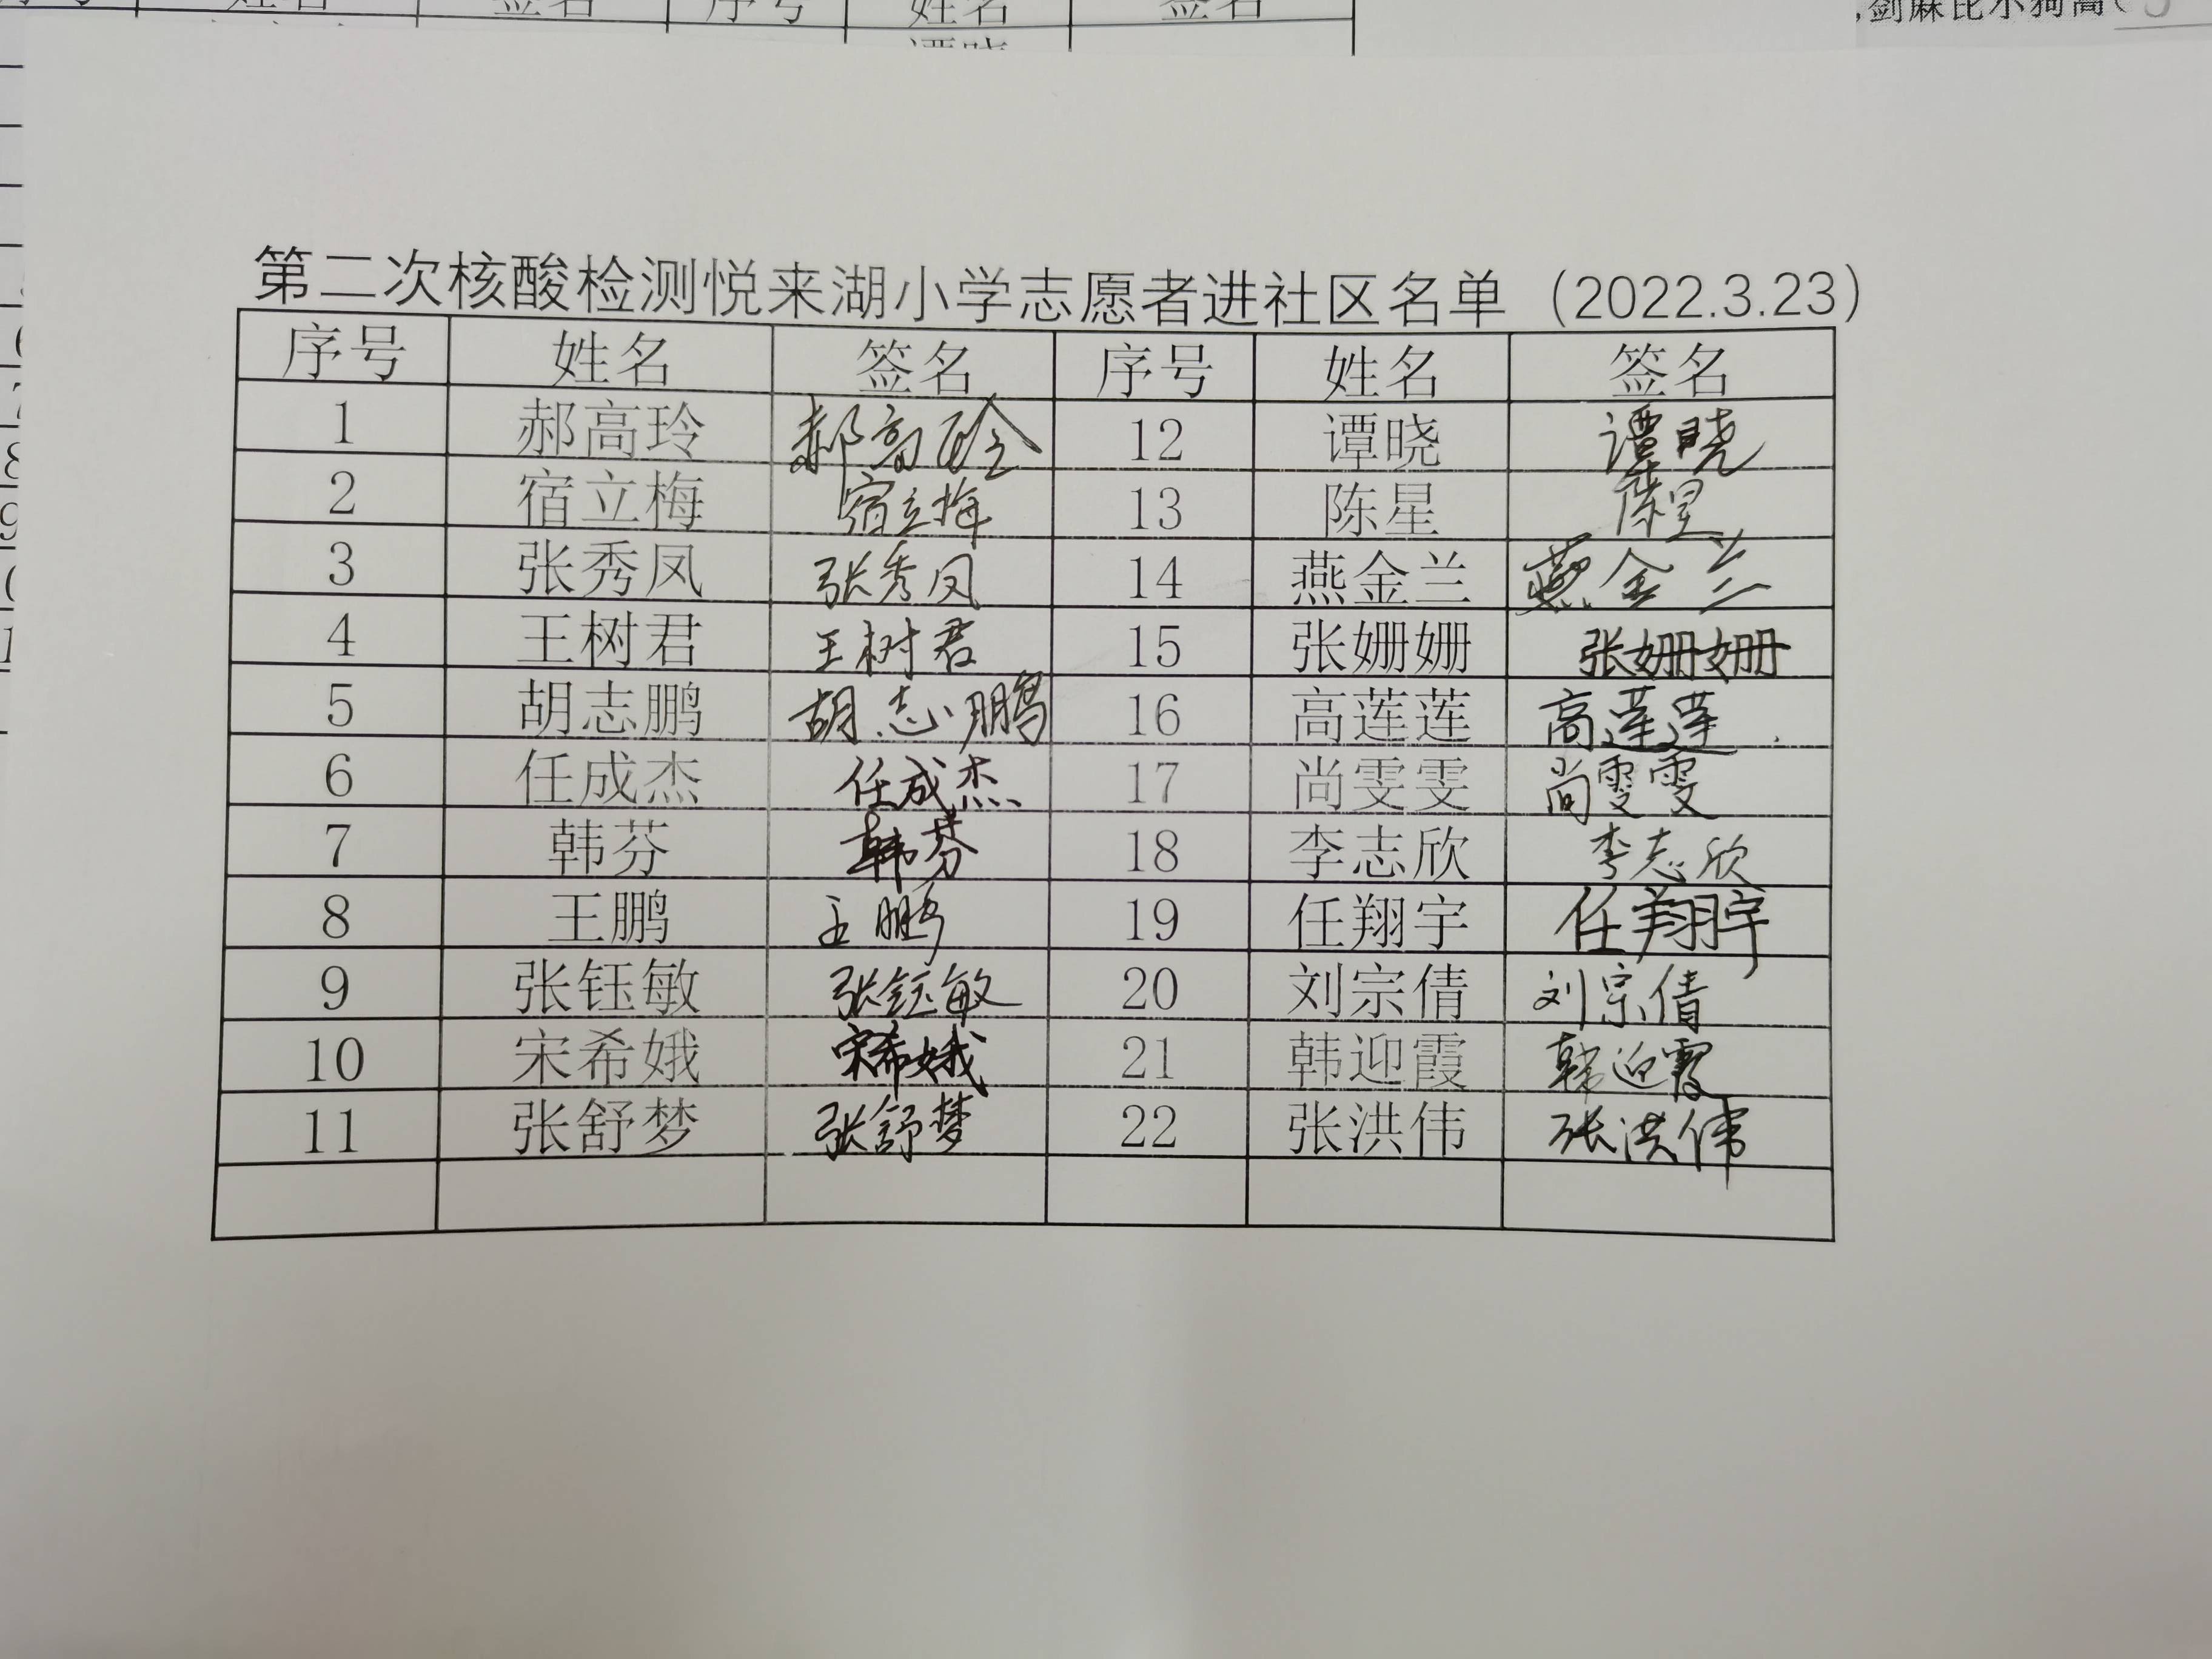 序号 姓名 签名 序号 姓名 签名
剑麻比小狗高(
第二次核酸检测悦来湖小学志愿者进社区名单（2022.3.23）
序号 姓名 签名 序号 姓名 签名
1 郝高玲 郝高玲 12 谭晓 谭晓
2 宿立梅 宿立梅 13 陈星 陈星
3 张秀凤 张秀凤 14 燕金兰 燕金兰
4 王树君 王树君 15 张姗姗 张姗姗
5 胡志鹏 胡志鹏 16 高莲莲 高莲莲
6 任成杰 任成杰 17 尚雯雯 尚雯雯
7 韩芬 韩芬 18 李志欣 李志欣
8 王鹏 王鹏 19 任翔宇 任翔宇
9 张钰敏 张钰敏 20 刘宗倩 刘宗倩
10 宋希娥 宋希娥 21 韩迎霞 韩迎霞
11 张舒梦 张舒梦 22 张洪伟 张洪伟